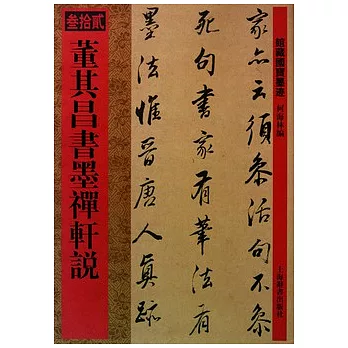 叁拾貳
董其昌書墨禪軒説
家亦云須參活句不參
死句書家有筆法有
墨法惟晉唐人真跡
館藏國寶墨迹
何海林編
上海辭書出版社